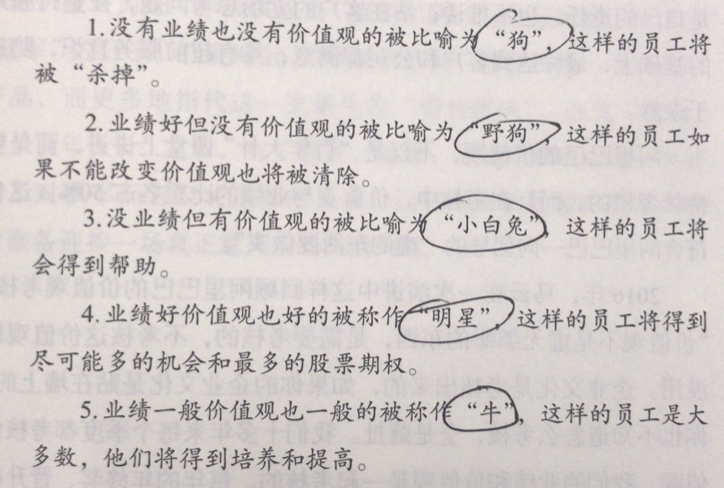 1.没有业绩也没有价值观的被比喻为“狗”，这样的员工将
被“杀掉”。
2.业绩好但没有价值观的被比喻为“野狗”，这样的员工如
果不能改变价值观也将被清除。
3.没业绩但有价值观的被比喻为“小白兔”，这样的员工将
会得到帮助。
4.业绩好价值观也好的被称作“明星”，这样的员工将得到
尽可能多的机会和最多的股票期权。
5.业绩一般价值观也一般的被称作“牛”，这样的员工是大
多数，他们将得到培养和提高。